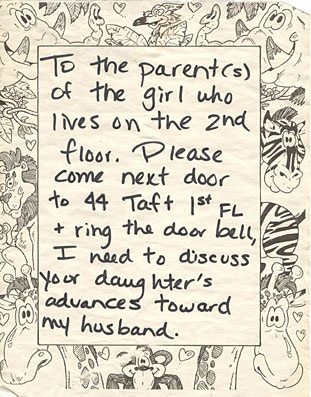 To the parent(s)
of the girl who
lives on the 2nd
floor. Please
come next door
to 44 Taft 1st FL
+ ring the door bell,
I need to discuss
your daughter's
advances toward
my husband.